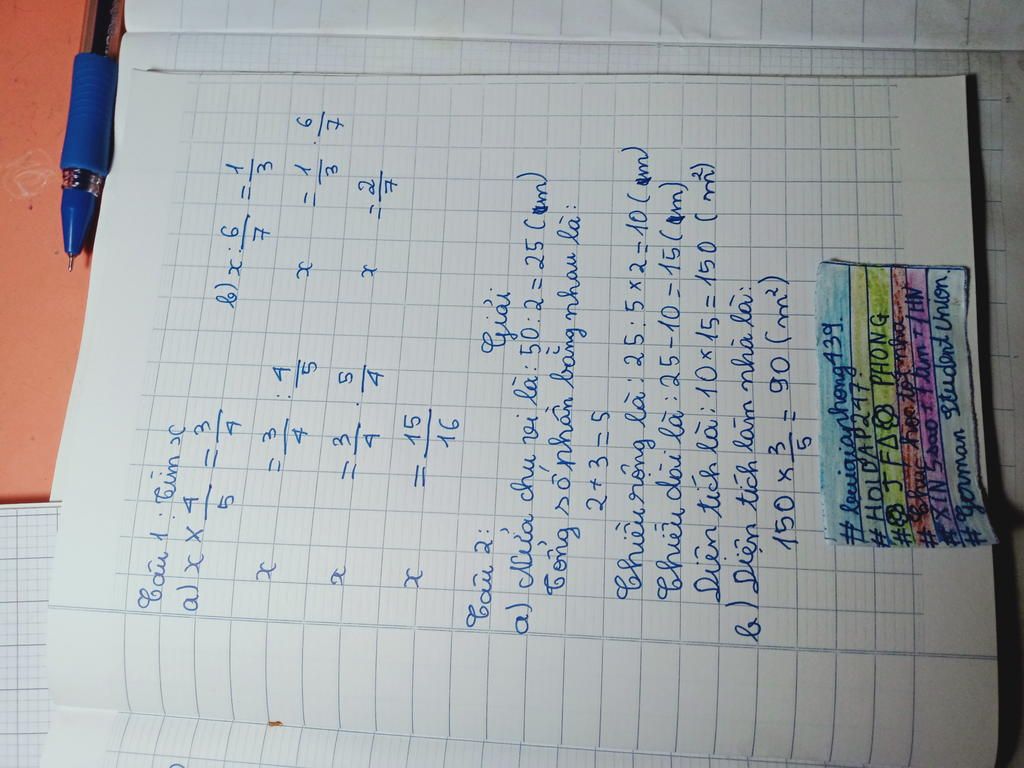 Câu 1: Tìm x
a) x × 4/5 = 3/4
x = 3/4 : 4/5
x = 3/4 . 5/4
x = 15/16
b) x : 6/7 = 1/3
x = 1/3 . 6/7
x = 2/7
Câu 2:
Giải:
a) Nửa chu vi là: 50 : 2 = 25 (m)
Tổng số phần bằng nhau là:
2 + 3 = 5
Chiều rộng là: 25 : 5 × 2 = 10 (m)
Chiều dài là: 25 - 10 = 15 (m)
Diện tích là: 10 × 15 = 150 (m²)
b) Diện tích làm nhà là:
150 × 3/5 = 90 (m²)
#buigiaphong439
#HOIDAP247
PHONG
#Chúc học tốt nha
#XIN 5sao + 1 tim + 1HN
#German student Union